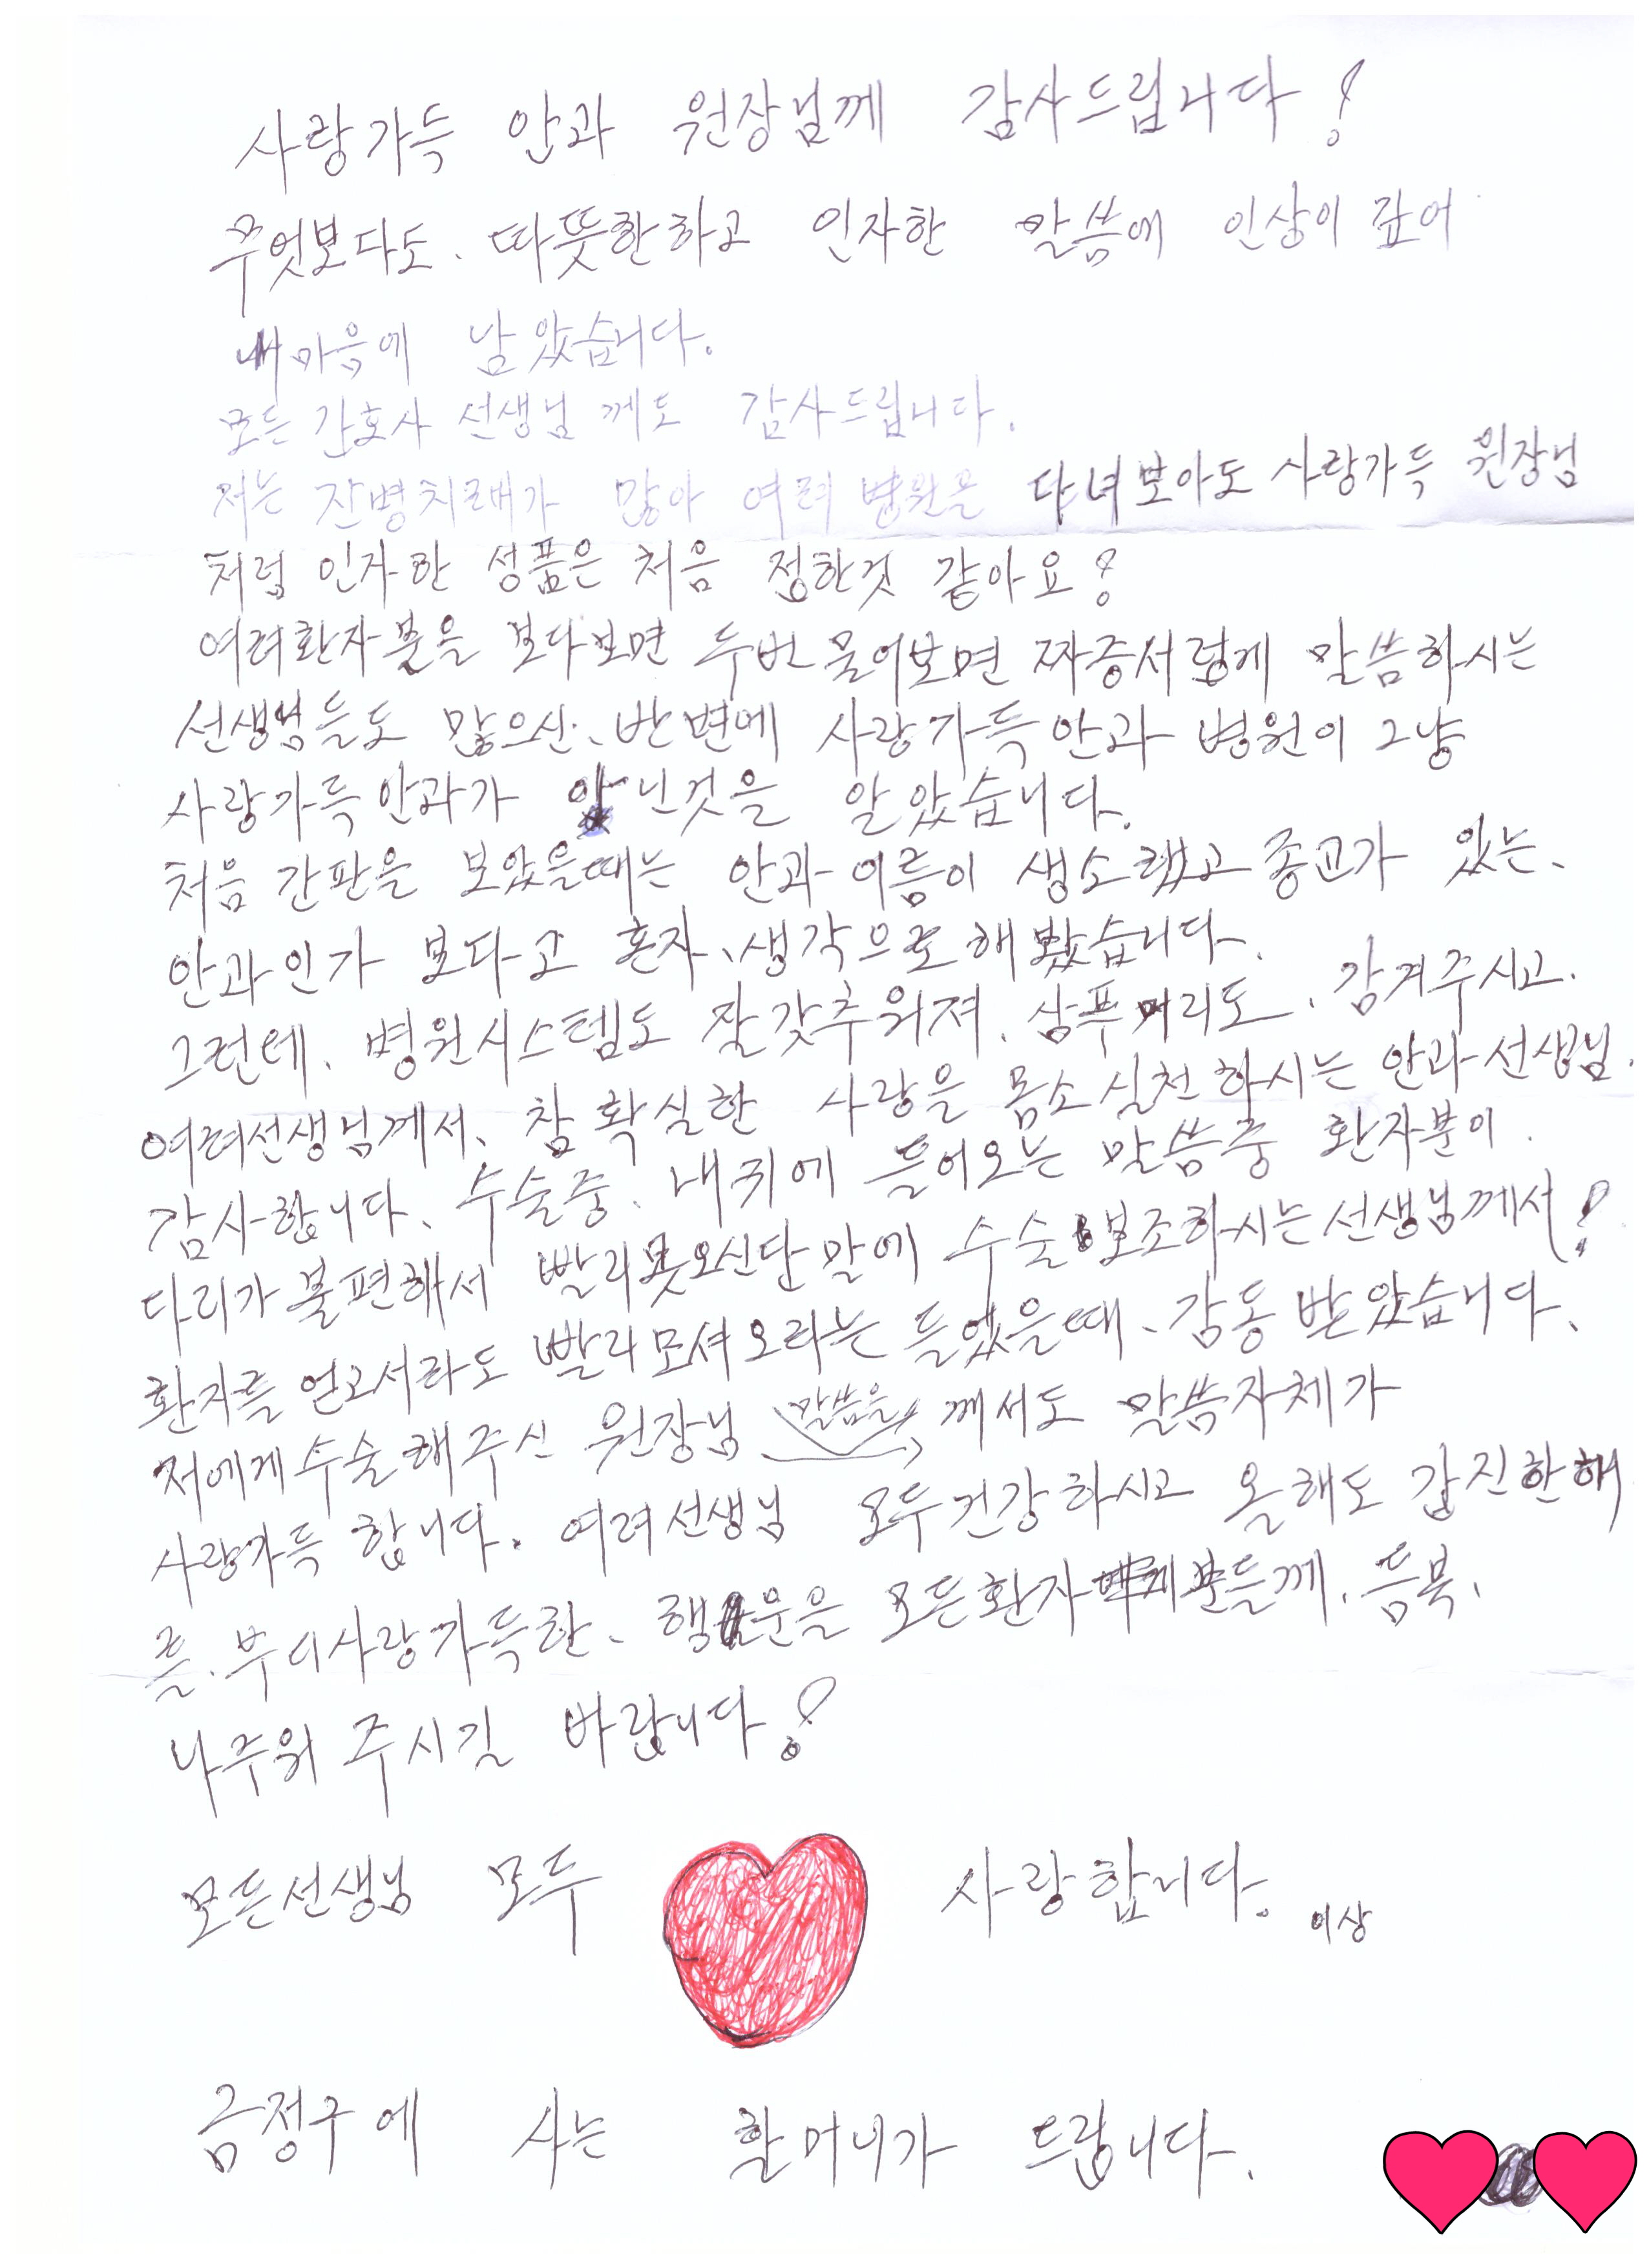 사랑가득 안과 원장님께 감사드립니다!
무엇보다도. 따뜻한하고 인자한 말씀에 인상이 깊어
내마음에 남았습니다.
모든 간호사 선생님 께도 감사드립니다.
저는 잔병치래가 많아 여러 병원을 다녀보아도 사랑가득 원장님
처럼 인자한 성품은 처음 접한것 같아요!
여러환자분을 보다보면 두번 물어보면 짜증서렇게 말씀하시는
선생님들도 많으신. 반면에 사랑가득안과 병원이 그냥
사랑가득안과가 아닌것을 알았습니다.
처음 간판을 보았을때는 안과 이름이 생소했고 종교가 있는.
안과인가 보다고 혼자. 생각으로 해봤습니다.
그런데. 병원시스템도 잘갖추워져. 삼푸머리도. 감겨주시고.
여려선생님께서. 참 확실한 사랑을 몸소실천하시는 안과선생님.
감사합니다. 수술중. 내귀에 들어오는 말씀중 환자분이.
다리가 불편해서 빨리못오신단말에 수술보조하시는선생님께서!
환자를 얻고서라도 빨리모셔오라는 들었을때. 감동 받았습니다.
저에게수술해주신 원장님 말씀을 께서도 말씀자체가
사랑가득 합니다. 여려선생님 모두건강하시고 올해도 갑진한해
를. 부디사랑가득한. 행운을 모든환자분들께. 듬북.
나주워 주시길 바랍니다!
모든선생님 모두 사랑합니다. 이상
금정구에 사는 할머니가 드립니다.